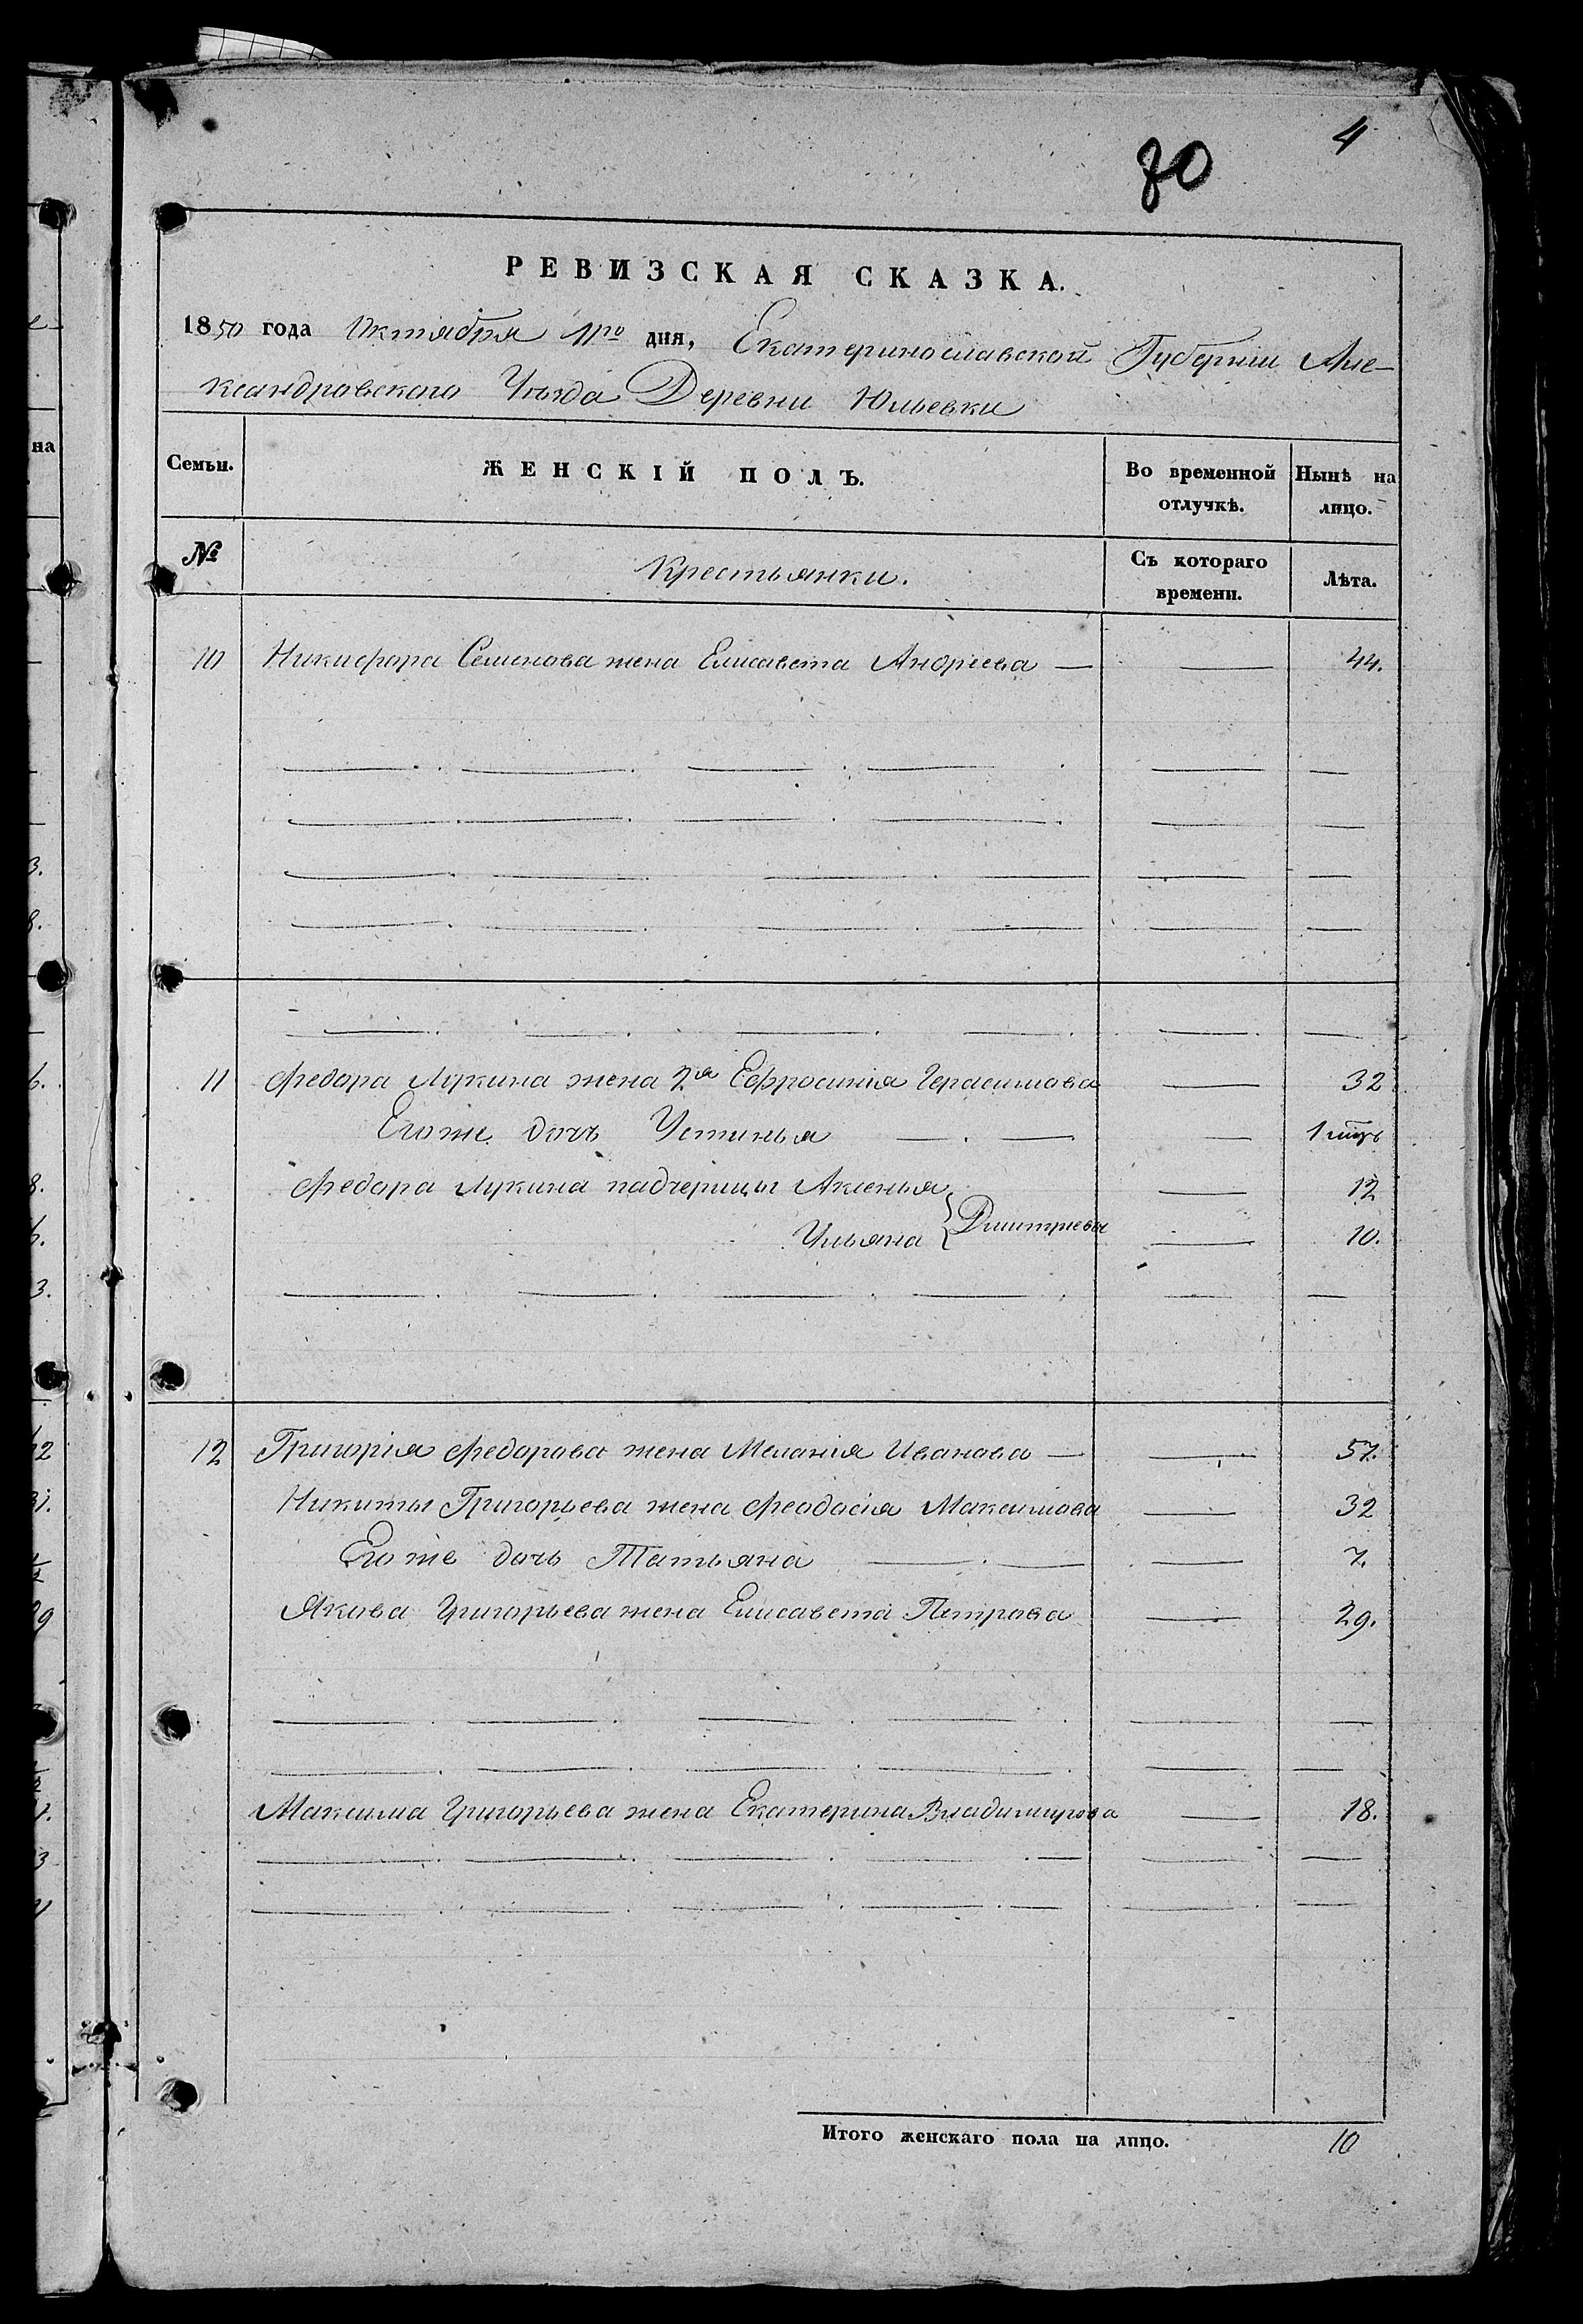 4
80
РЕВИЗСКАЯ СКАЗКА.
1850 года Октября 1го дня, Екатеринославской Губернии Але-
ксандровского Уезда Деревни Юльевки
Семьи. ЖЕНСКІЙ ПОЛЪ. Во временной отлучкѣ. Нынѣ на лицо.
№ Крестьянки. Съ котораго времени. Лѣта.
10 Никифора Семенова жена Елисавета Андреева — — 44.
11 Федора Лукина жена 2я Ефросинія Герасимова — 32
Его же дочь Устинья — — — 1
Федора Лукина падчерицы Аксенья — 12
Ульяна } Дмитриевы — 10.
12 Григорія Федорова жена Меланія Иванова — — 57.
Никиты Григорьева жена Феодосія Максимова — 32
Его же дочь Татьяна — — — 7.
Якова Григорьева жена Елисавета Петрова — 29.
Максима Григорьева жена Екатерина Владимирова — 18.
Итого женскаго пола на лицо. 10
на
3.
8.
6.
8.
6.
3.